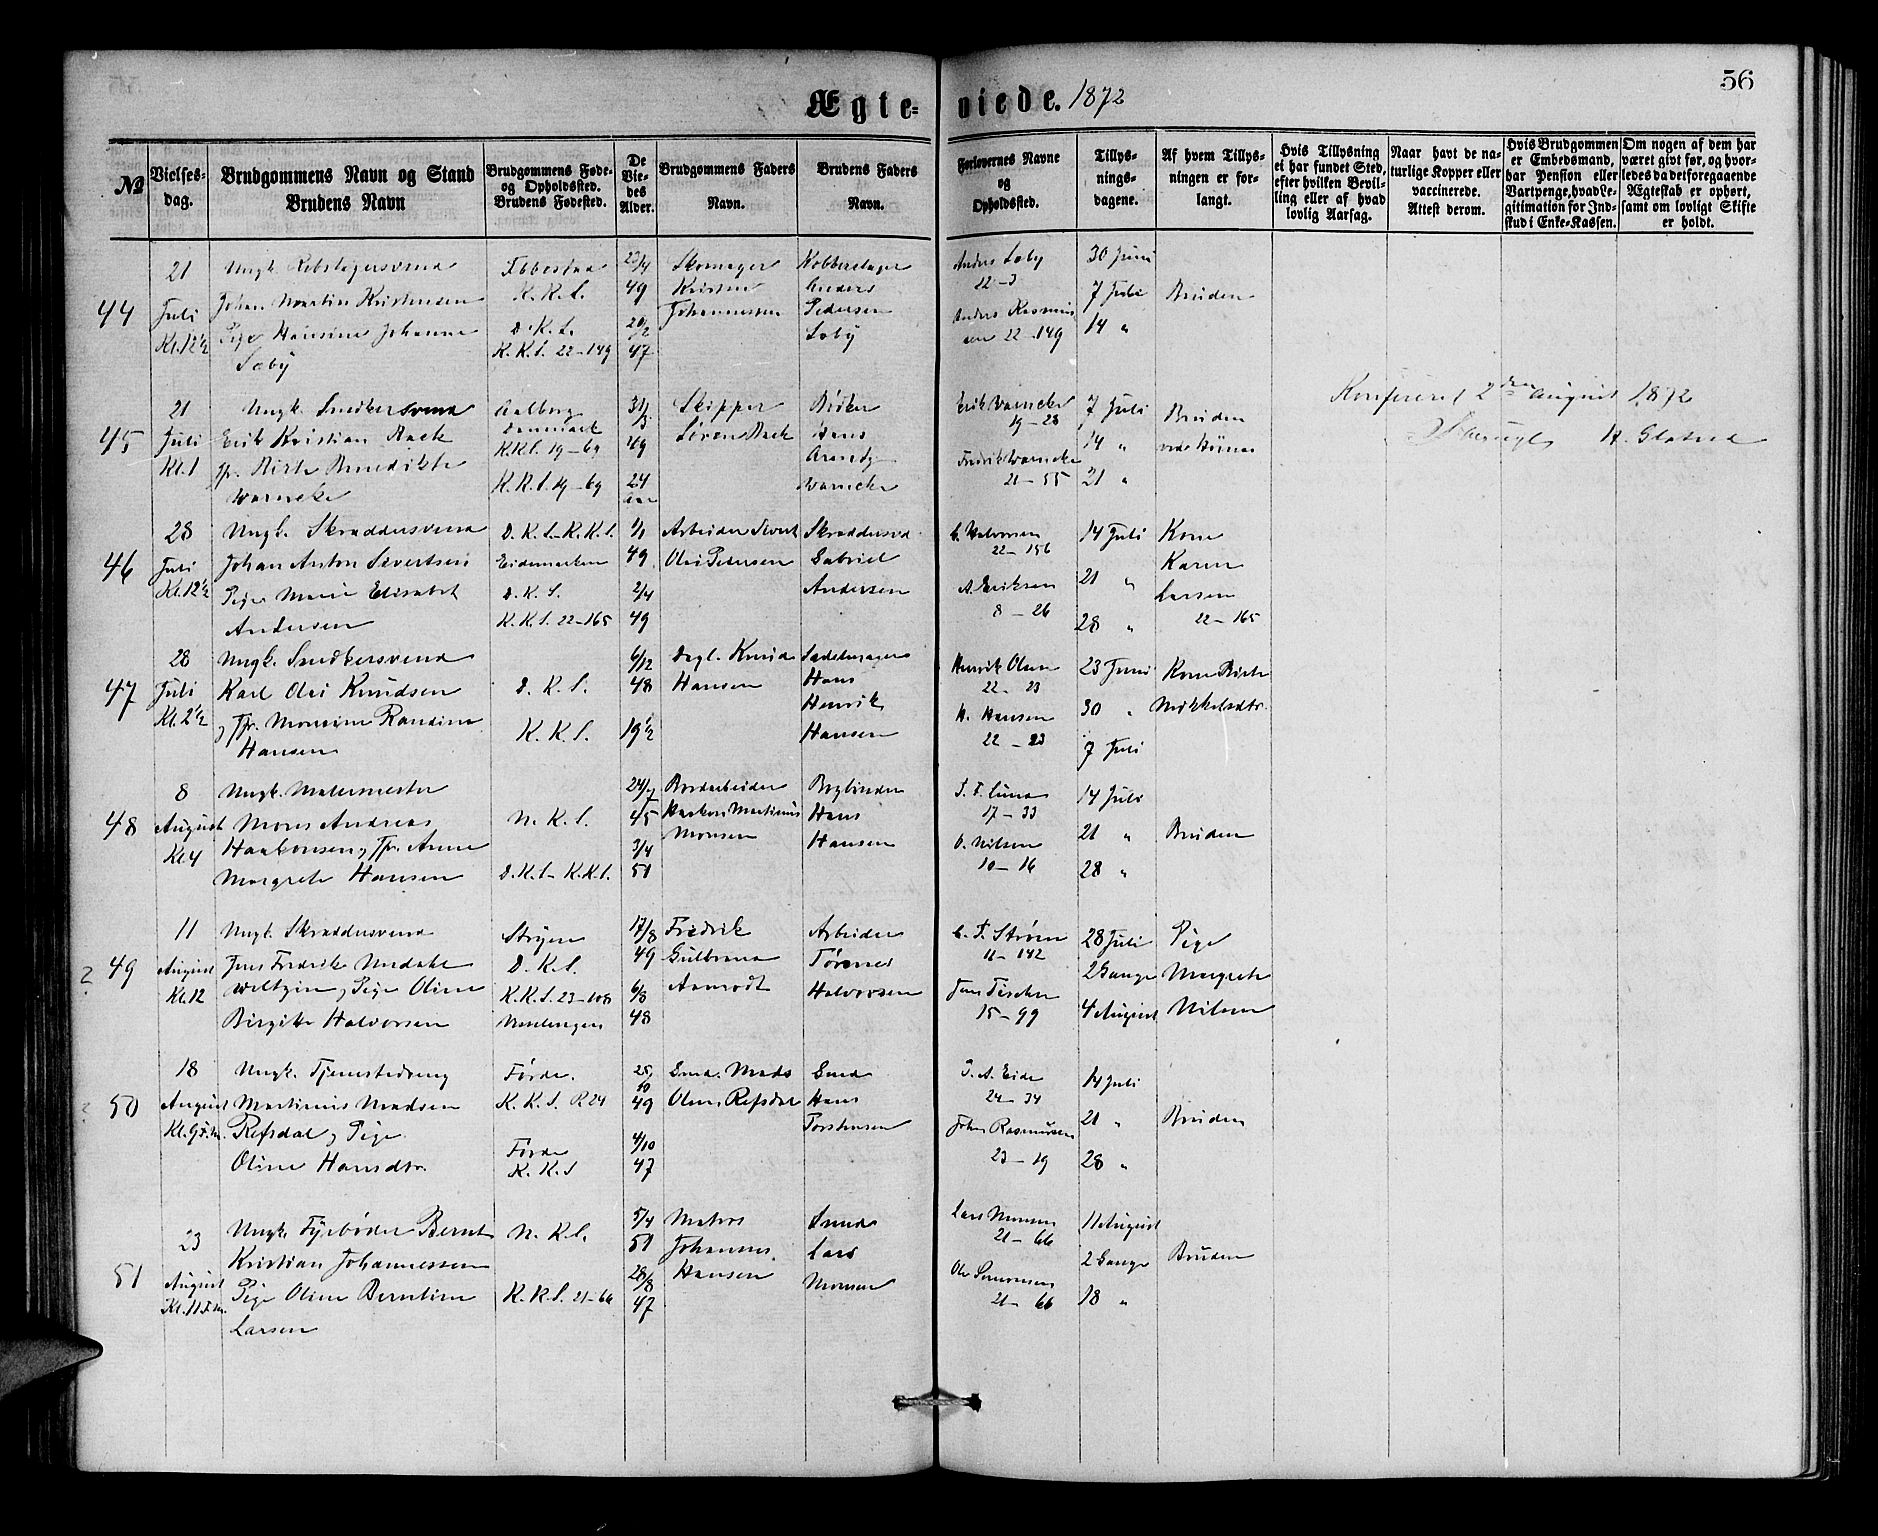 Ægte-viede. 1872
56
№
Vielses-dag.
Brudgommens Navn og Stand
Brudens Navn
Brudgommens Føde- og Opholdssted.
Brudens Fødested.
De Vie-des Alder.
Brudgommens Faders Navn.
Brudens Faders Navn.
Forlovernes Navne og Opholdssted.
Tillys-nings-dagene.
Af hvem Tillys-ningen er for-langt.
Hvis Tillysning ei har fundet Sted, efter hvilken Bevil-ling eller af hvad lovlig Aarsag.
Naar havt de na-turlige Kopper eller vaccinerede. Attest derom.
Hvis Brudgommen er Embedsmand, har Pension eller Vartpenge, hvad Le-gitimation for Ind-skud i Enke-Kassen.
Om nogen af dem har været givt før, og hvor-ledes da det foregaaende Ægteskab er ophørt, samt om lovligt Skifte er holdt.
44
21 Juli Kl. 12½
Ungk.
Johan Martin Kristensen
Pige Hansine Johanne
Sæby
K.K.S.
D.K.S.
K.K.S. 22-149
49
47
Skomager
Kristen
Johannessen
Kobberslager
Anders
Pedersen
Sæby
Anders Sæby
22-3
Anders Rasmus
sen 22-149
30 Juni
7 Juli
14 "
Bruden
45
21 Juli Kl. 1
Ungk. Snedkersvend
Erik Kristian Back
Jfr. Birte Benedikte
Warncke
Aalborg
Danmark
K.K.S. 19-69
K.K.S. 19-69
49
24
Aar
Skipper
Søren Back
Bødker
Hans
Warncke
Erik Warncke
19-28
Fredrik Warncke
21-55
7 Juli
14 "
21 "
Bruden
Konfereret 2den August 1872
46
28 Juli Kl. 12½
Ungk. Skræddersvend
Johan Anton Sivertsen
Pige Marie Elisabet
Andersen
D.K.S.-K.K.S.
Eidemarken
D.K.S.
K.K.S. 22-165
1/1
49
2/4
49
Arbeider Sivert
Olai Pedersen
Skræddersvd.
Gabriel
Andersen
C. Halvorsen
22-156
A. Eriksen
8-26
14 Juli
21 "
28 "
Kone
Karen
Larsen
22-165
47
28 Juli Kl. 2½
Ungk. Snedkersvend
Karl Olai Knudsen
og Jfr. Monsine Randine
Hansen
D.K.S.
K.K.S.
6/12
48
19½
Dagl. Knud
Hansen
Sadelmager
Hans
Henrik
Hansen
Henrik Olsen
22-23
H. Hansen
22-23
23 Juni
30 "
7 Juli
Kone Birte
Mikkelsdtr.
48
8 August Kl. 4
Ungk. Malermester
Mons Andreas
Haakonsen, Jfr. Anne
Margrete Hansen
N.K.S.
D.K.S-K.K.S.
24/7
45
3/4
51
Bordarbeider
Haakon Martinus
Monsen
Bogbinder
Hans
Hansen
17-33
O. Nilsen
10-16
14 Juli
21 "
28 "
Bruden
49
11 August Kl. 12
Ungk. Skræddersvend
Jens Fredrik Undahl
Weltzin, Pige Oline
Birgitte Halvorsen
Stryen
D.K.S.
K.K.S. 23-108
17/8
49
6/8
48
Fredrik
Gulbrand
Aamodt
Arbeider
Tørres
Halvorsen
C. F. Strøm
11-142
Jens Fischer
15-99
28 Juli
2 Gange
4 August
Pige
Margrete
Nilsen
50
18 August Kl. 9 F.M.
Ungk. Tjenestedreng
Martinus Madsen
Refsdal, Pige
Oline Hansdtr.
Førde.
K.K.S. R.24
Førde
K.K.S
25/10
49
4/10
47
Gmd. Mads
Olsen Refsdal
Gmd
Hans
Torstensen
P. A. Eide
24-34
John Rasmussen
23-19
14 Juli
21 "
28 "
Bruden
51
23 August Kl. 11 F.M.
Ungk. Fyrbøder Bernt
Kristian Johannessen
Pige Oline Berntine
Larsen
N.K.S.
K.K.S. 21-66
5/4
51
28/8
47
Matros
Johannes
Hansen
Smed
Lars
Monsen
Lars Monsen
21-66
Ole Simonsen
21-66
11 August
2 Gange
18 "
Bruden